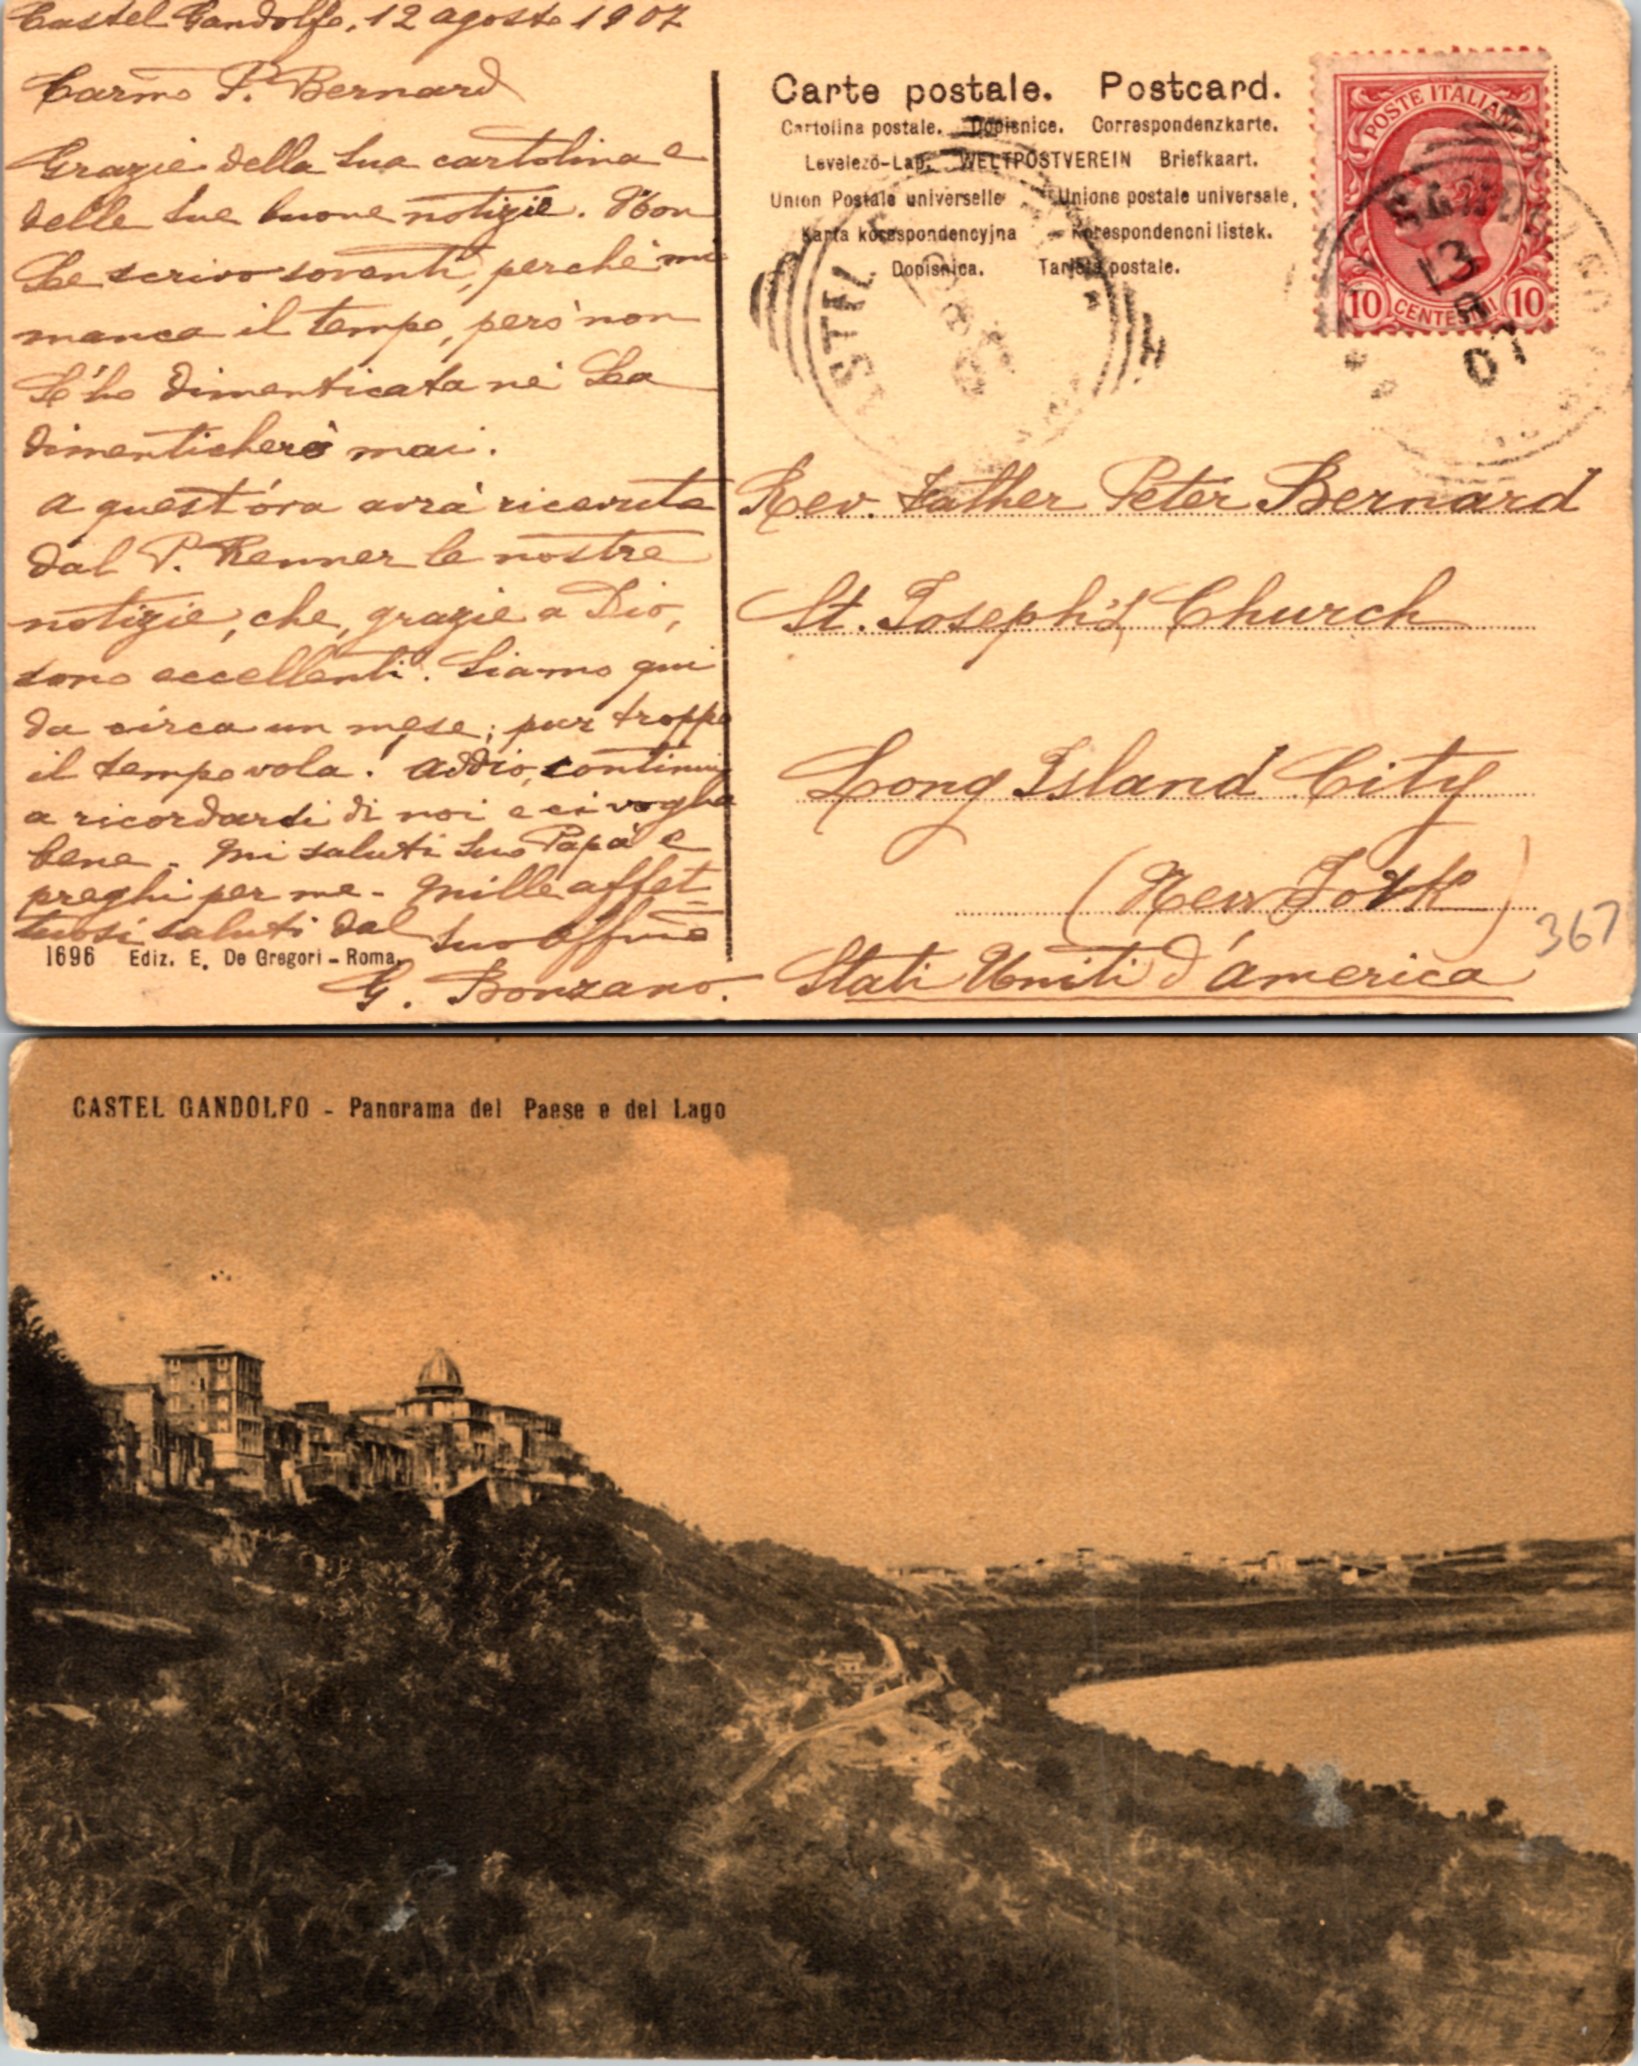 Castel Gandolfo, 12 agosto 1907
Carmo P. Bernard
Grazie della sua cartolina e
delle sue buone notizie. Non
Le scrivo soventi, perchè mi
manca il tempo, però non
L'ho dimenticata nè La
dimenticherò mai.
A quest'ora avrà ricevute
dal P. Renner le nostre
notizie, che, grazie a Dio,
sono eccellenti. Siamo qui
da circa un mese; pur troppo
il tempo vola! Addio, continui
a ricordarsi di noi e ci voglia
bene. Mi saluti Suo Papà e
preghi per me. Mille affet-
tuosi saluti dal suo affmo
G. Bonzano.
1696 Ediz. E. De Gregori - Roma.
Carte postale. Postcard.
Cartolina postale. Dopisnice. Correspondenzkarte.
Levelező-Lap. WELTPOSTVEREIN Briefkaart.
Union Postale universelle Unione postale universale,
Karta korespondencyjna Korespondencni listek.
Dopisnica. Tarjeta postale.
POSTE ITALIANE
10 CENTESIMI 10
13
8
07
Rev. Father Peter Bernard
St. Joseph's Church
Long Island City
(New York)
Stati Uniti d'America
367
CASTEL GANDOLFO - Panorama del Paese e del Lago